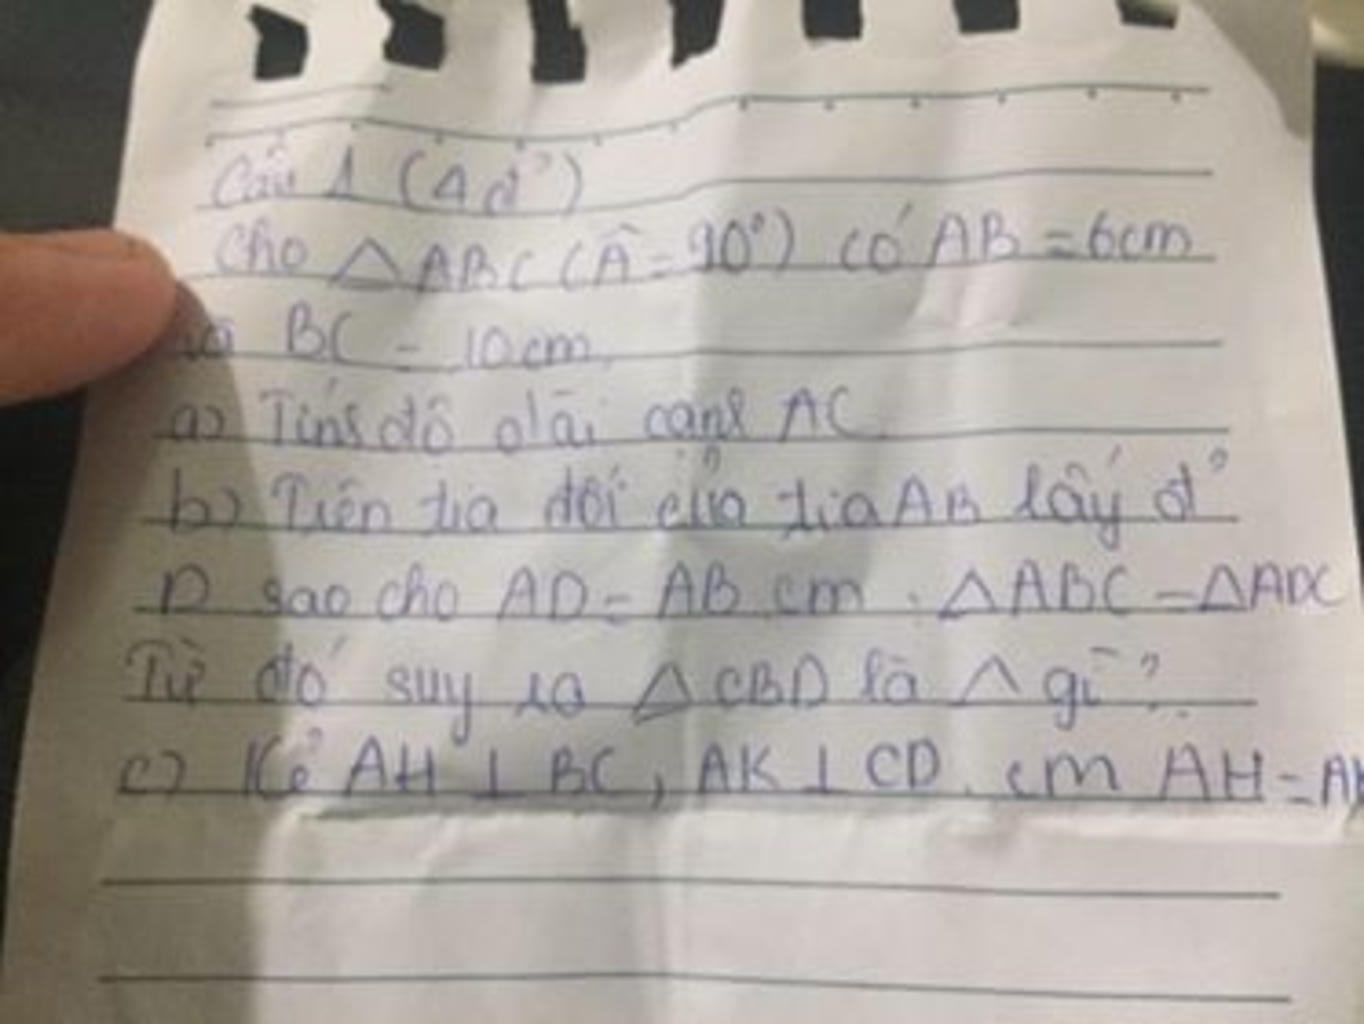 Câu 1 (4đ')
Cho △ABC (Â = 90°) có AB = 6cm
và BC = 10cm.
a) Tính độ dài cạnh AC.
b) Trên tia đối của tia AB lấy đ'
D sao cho AD = AB. cm. △ABC = △ADC
Từ đó suy ra △CBD là △ gì?
c) Kẻ AH ⊥ BC, AK ⊥ CD. cm AH = AK